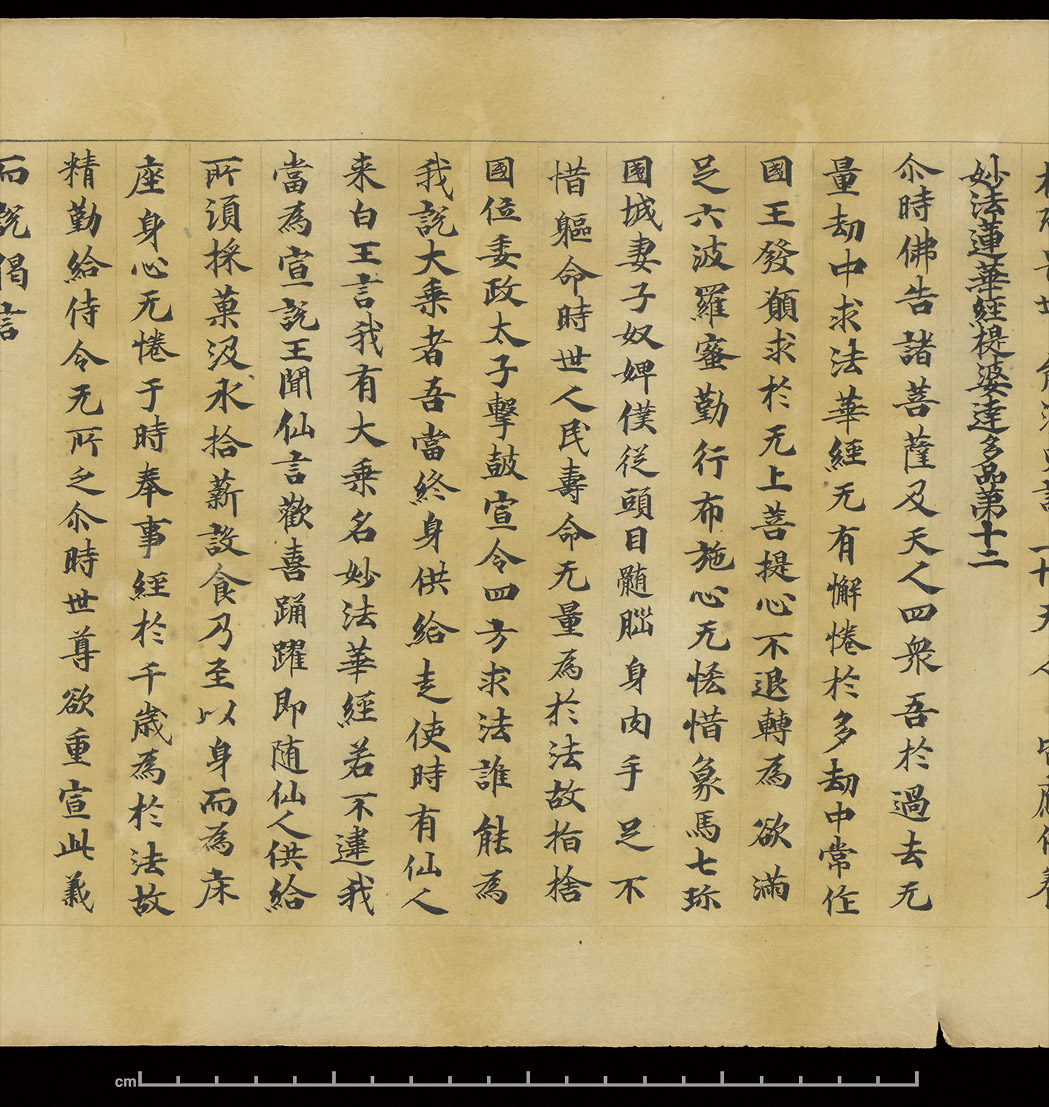 妙法蓮華經提婆達多品第十二
尒時佛告諸菩薩及天人四衆吾於過去无
量劫中求法華經无有懈惓於多劫中常作
國王發願求於无上菩提心不退轉為欲滿
足六波羅蜜勤行布施心无悋惜象馬七珎
國城妻子奴婢僕従頭目髄脳身肉手足不
惜軀命時世人民壽命无量為於法故捐捨
國位委政太子擊皷宣令四方求法誰能為
我說大乗者吾當終身供給走使時有仙人
来白王言我有大乗名妙法華經若不違我
當為宣說王聞仙言歡喜踊躍即随仙人供給
所須採菓汲水拾薪設食乃至以身而為床
座身心无惓于時奉事經於千歳為於法故
精勤給侍令无所乏尒時世尊欲重宣此義
而說偈言
cm